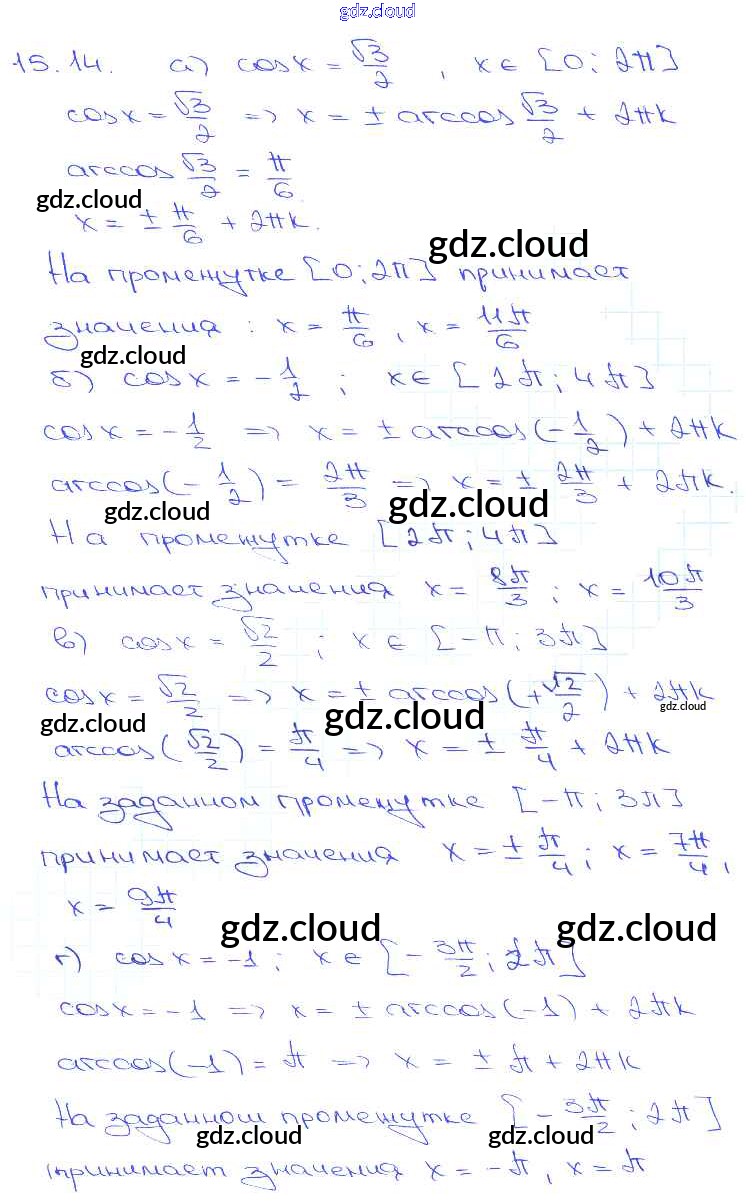 gdz.cloud
15.14. а) cos x = √3/2 , x ∈ [0; 2π]
cos x = √3/2 => x = ± arccos √3/2 + 2πk
arccos √3/2 = π/6
gdz.cloud
x = ± π/6 + 2πk.
gdz.cloud
На промежутке [0; 2π] принимает
значения : x = π/6 , x = 11π/6
gdz.cloud
б) cos x = -1/2 ; x ∈ [2π; 4π]
cos x = -1/2 => x = ± arccos(-1/2) + 2πk
arccos(-1/2) = 2π/3 => x = ± 2π/3 + 2πk.
gdz.cloud gdz.cloud
На промежутке [2π; 4π]
принимает значения x = 8π/3 ; x = 10π/3
в) cos x = √2/2 ; x ∈ [-π; 3π]
cos x = √2/2 => x = ± arccos(+√2/2) + 2πk
gdz.cloud gdz.cloud gdz.cloud
arccos(√2/2) = π/4 => x = ± π/4 + 2πk
На заданном промежутке [-π; 3π]
принимает значения x = ± π/4 ; x = 7π/4 ,
x = 9π/4
gdz.cloud gdz.cloud
г) cos x = -1 ; x ∈ [-3π/2 ; 2π]
cos x = -1 => x = ± arccos(-1) + 2πk
arccos(-1) = π => x = ± π + 2πk
На заданном промежутке [-3π/2 ; 2π]
gdz.cloud gdz.cloud
принимает значения x = -π , x = π